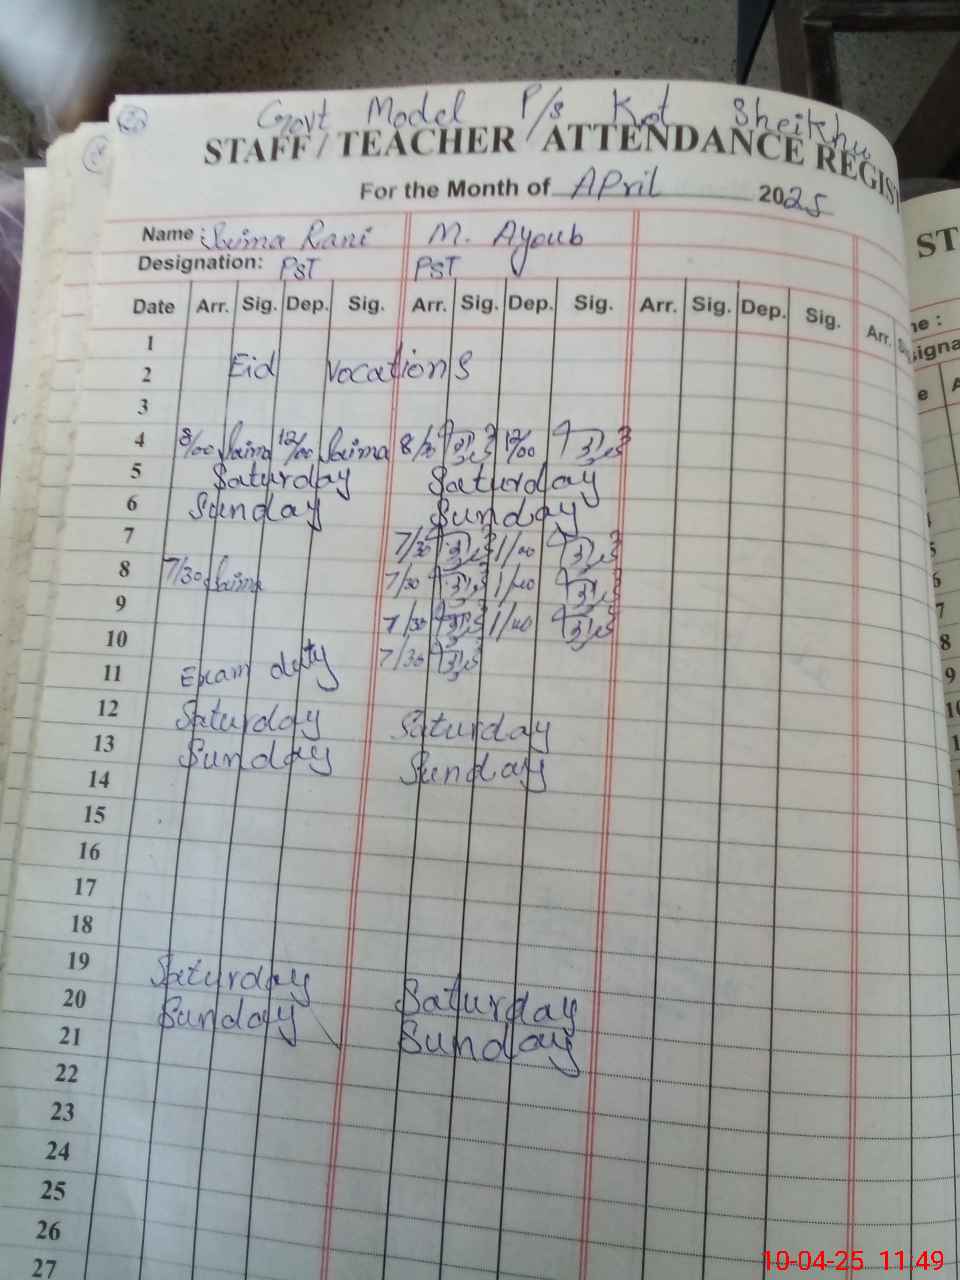 Govt Model P/s Kot Sheikhu
STAFF / TEACHER ATTENDANCE REGIS
For the Month of April 2025
Name : Saima Rani M. Ayoub
Designation: PST PST
Date Arr. Sig. Dep. Sig. Arr. Sig. Dep. Sig. Arr. Sig. Dep. Sig. Arr.
1
2 Eid Vocations
3
4 8/00 Saima 12/00 Saima 8/00 12/00
5 Saturday Saturday
6 Sunday Sunday
7 7/30 1/00
8 7/30 Saima 7/30 1/00
9 7/30 1/00
10 7/30
11 Exam duty
12 Saturday Saturday
13 Sunday Sunday
14
15
16
17
18
19 Saturday Saturday
20 Sunday Sunday
21
22
23
24
25
26
27
ST
10-04-25 11:49